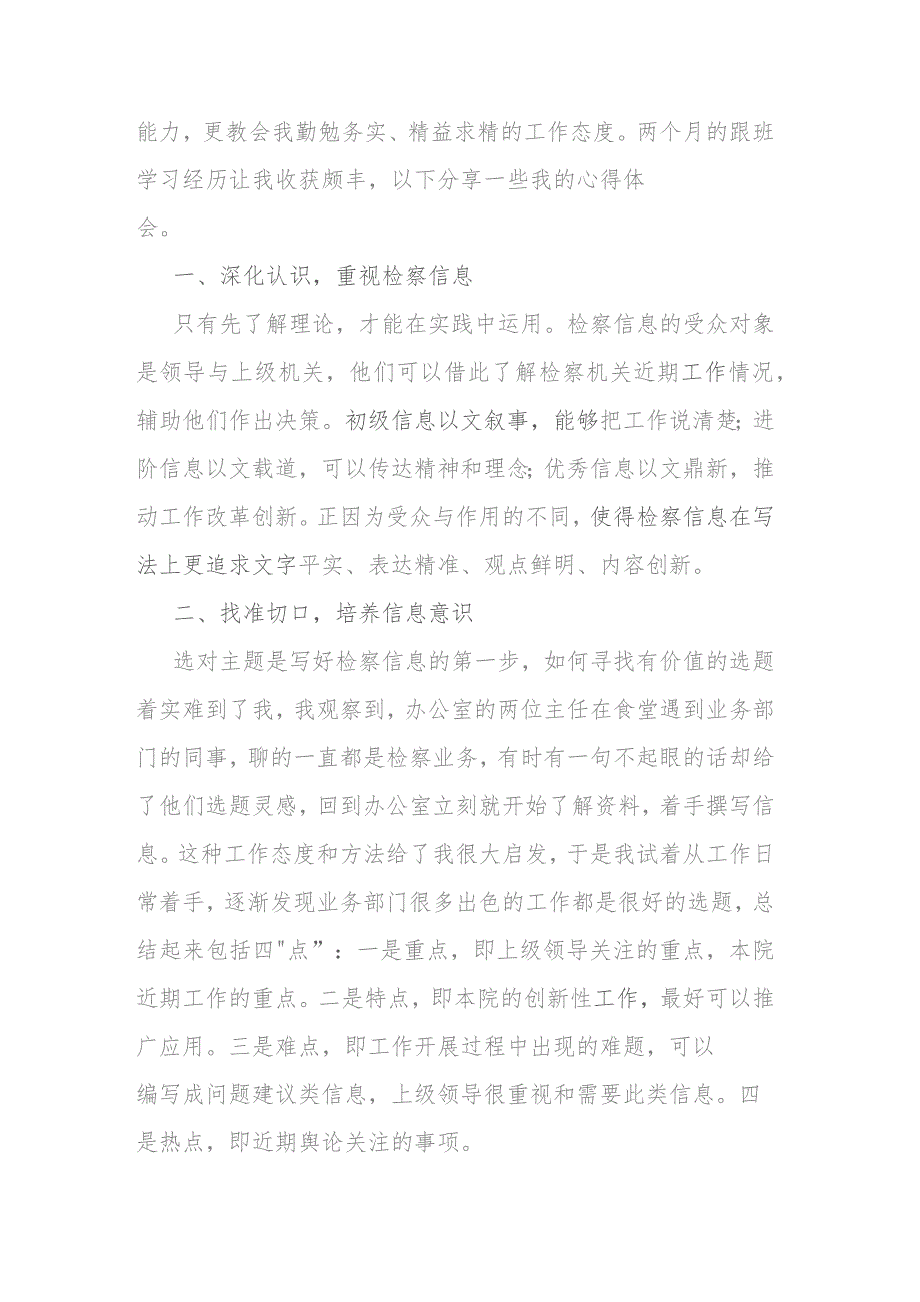 能力，更教会我勤勉务实、精益求精的工作态度。两个月的跟班
学习经历让我收获颇丰，以下分享一些我的心得体
会。
一、深化认识，重视检察信息
只有先了解理论，才能在实践中运用。检察信息的受众对象
是领导与上级机关，他们可以借此了解检察机关近期工作情况，
辅助他们作出决策。初级信息以文叙事，能够把工作说清楚；进
阶信息以文载道，可以传达精神和理念；优秀信息以文鼎新，推
动工作改革创新。正因为受众与作用的不同，使得检察信息在写
法上更追求文字平实、表达精准、观点鲜明、内容创新。
二、找准切口，培养信息意识
选对主题是写好检察信息的第一步，如何寻找有价值的选题
着实难到了我，我观察到，办公室的两位主任在食堂遇到业务部
门的同事，聊的一直都是检察业务，有时有一句不起眼的话却给
了他们选题灵感，回到办公室立刻就开始了解资料，着手撰写信
息。这种工作态度和方法给了我很大启发，于是我试着从工作日
常着手，逐渐发现业务部门很多出色的工作都是很好的选题，总
结起来包括四"点”：一是重点，即上级领导关注的重点，本院
近期工作的重点。二是特点，即本院的创新性工作，最好可以推
广应用。三是难点，即工作开展过程中出现的难题，可以
编写成问题建议类信息，上级领导很重视和需要此类信息。四
是热点，即近期舆论关注的事项。